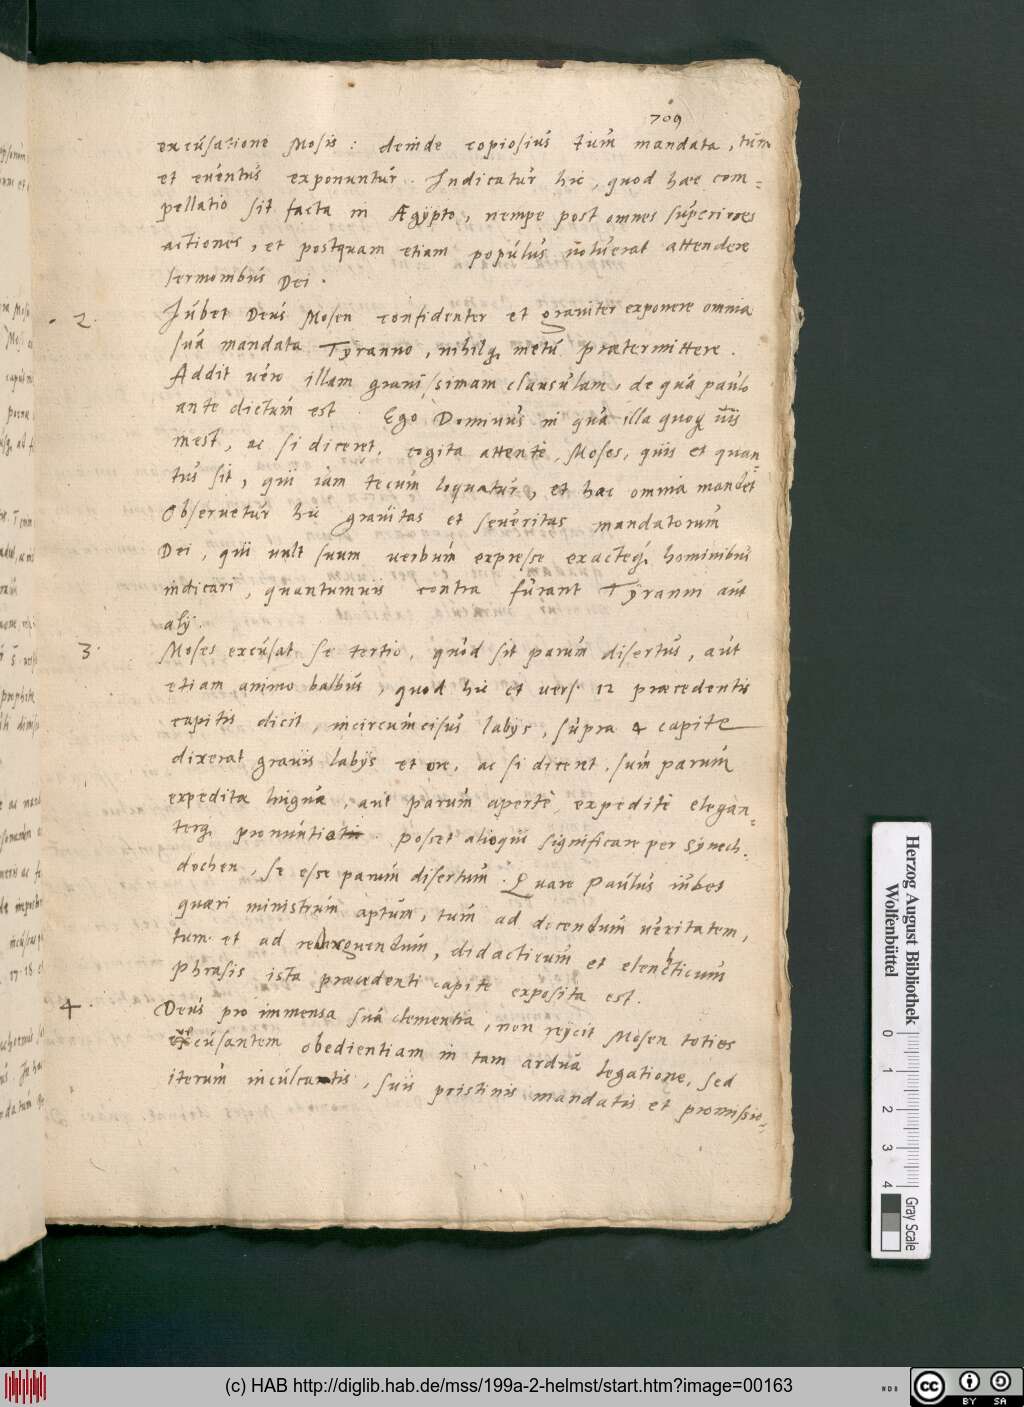 709
excusatione Mosis : deinde copiosius tum mandata, tum
et euentus exponuntur. Indicatur hic, quod haec com=
pellatio sit facta in Ægÿpto, nempe post omnes superiores
actiones, et postquam etiam populus noluerat attendere
sermonibus Dei.
2. Iubet Deus Mosen confidenter et grauiter exponere omnia
sua mandata Tyranno, nihilq, metu praetermittere.
Addit uero illam grauissimam clausulam, de qua paulo
ante dictum est. Ego Dominus in qua illa quoq uis
inest, ac si diceret, cogita attente, Moses, quis et quan=
tus sit, qui iam tecum loquatur, et haec omnia mandet
Obseruetur hic grauitas et seueritas mandatorum
Dei, qui uult suum uerbum expresse exacteq, hominibus
indicari, quantumuis contra furant Tÿranni aut
alij.
3. Moses excusat se tertio, quod sit parum disertus, aut
etiam animo balbus, quod hic et vers. 12 praecedentis
capitis dicit, incircumcisus labijs, supra 4 capite
dixerat grauis labijs et ore, ac si diceret, sum parum
expedita lingua, aut parum aperte, expedite elegan=
terq, pronuntio. Posset alioqui significare per Sÿnech.
dochen, se esse parum disertum. Quare Paulus iubet
quaeri ministrum aptum, tum ad docendum ueritatem,
tum et ad redarguendum, didacticum et elenchticum
Phrasis ista praecedenti capite exposita est.
4. Deus pro immensa sua clementia, non reijcit Mosen toties
excusantem obedientiam in tam ardua legatione, sed
iterum inculcatis, suis pristinis mandatis et promissio=
Herzog August Bibliothek
Wolfenbüttel
0 1 2 3 4
Gray Scale
(c) HAB http://diglib.hab.de/mss/199a-2-helmst/start.htm?image=00163
cc BY SA